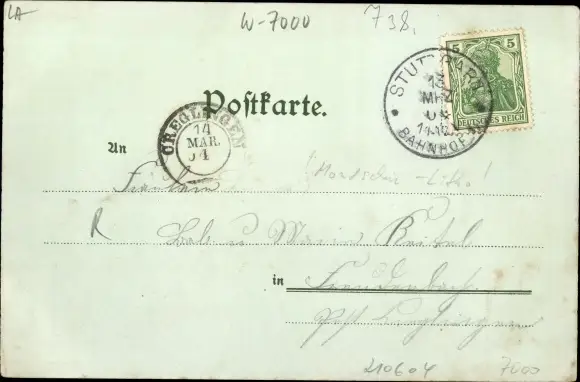 LA
W-7000
738.
5 5
DEUTSCHES REICH
STUTTGART
13
MRZ
04
BAHNHOF
Postkarte.
CREGLINGEN
14
MAR.
04
An
Fräulein
(Mondschein-Litho!
R
Bab. u Marie Beitel
in
Freudenbach
Post Creglingen
210604
7000